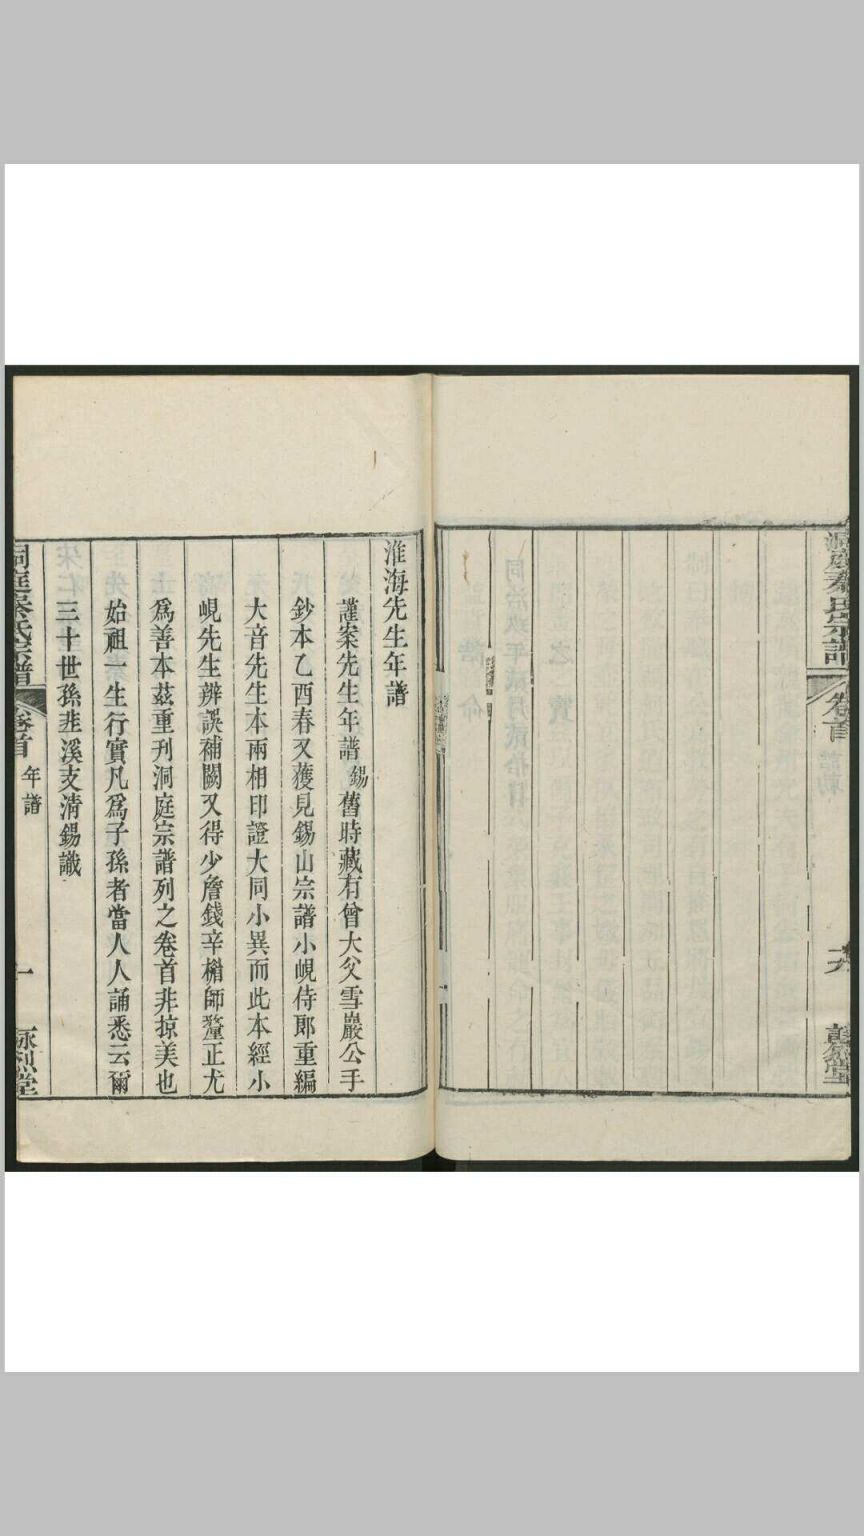 洞庭秦氏宗譜
卷首
誥勅
詠烈堂
同治玖年貳月貳拾日
之寶
誥命
淮海先生年譜
謹案先生年譜錫舊時藏有曾大父雪巖公手
鈔本乙酉春又獲見錫山宗譜小峴侍郎重編
大音先生本兩相印證大同小異而此本經小
峴先生辨誤補闕又得少詹錢辛楣師釐正尤
爲善本茲重刊洞庭宗譜列之卷首非掠美也
始祖一生行實凡爲子孫者當人人誦悉云爾
三十世孫韭溪支清錫識
洞庭秦氏宗譜
卷首
年譜
一
詠烈堂